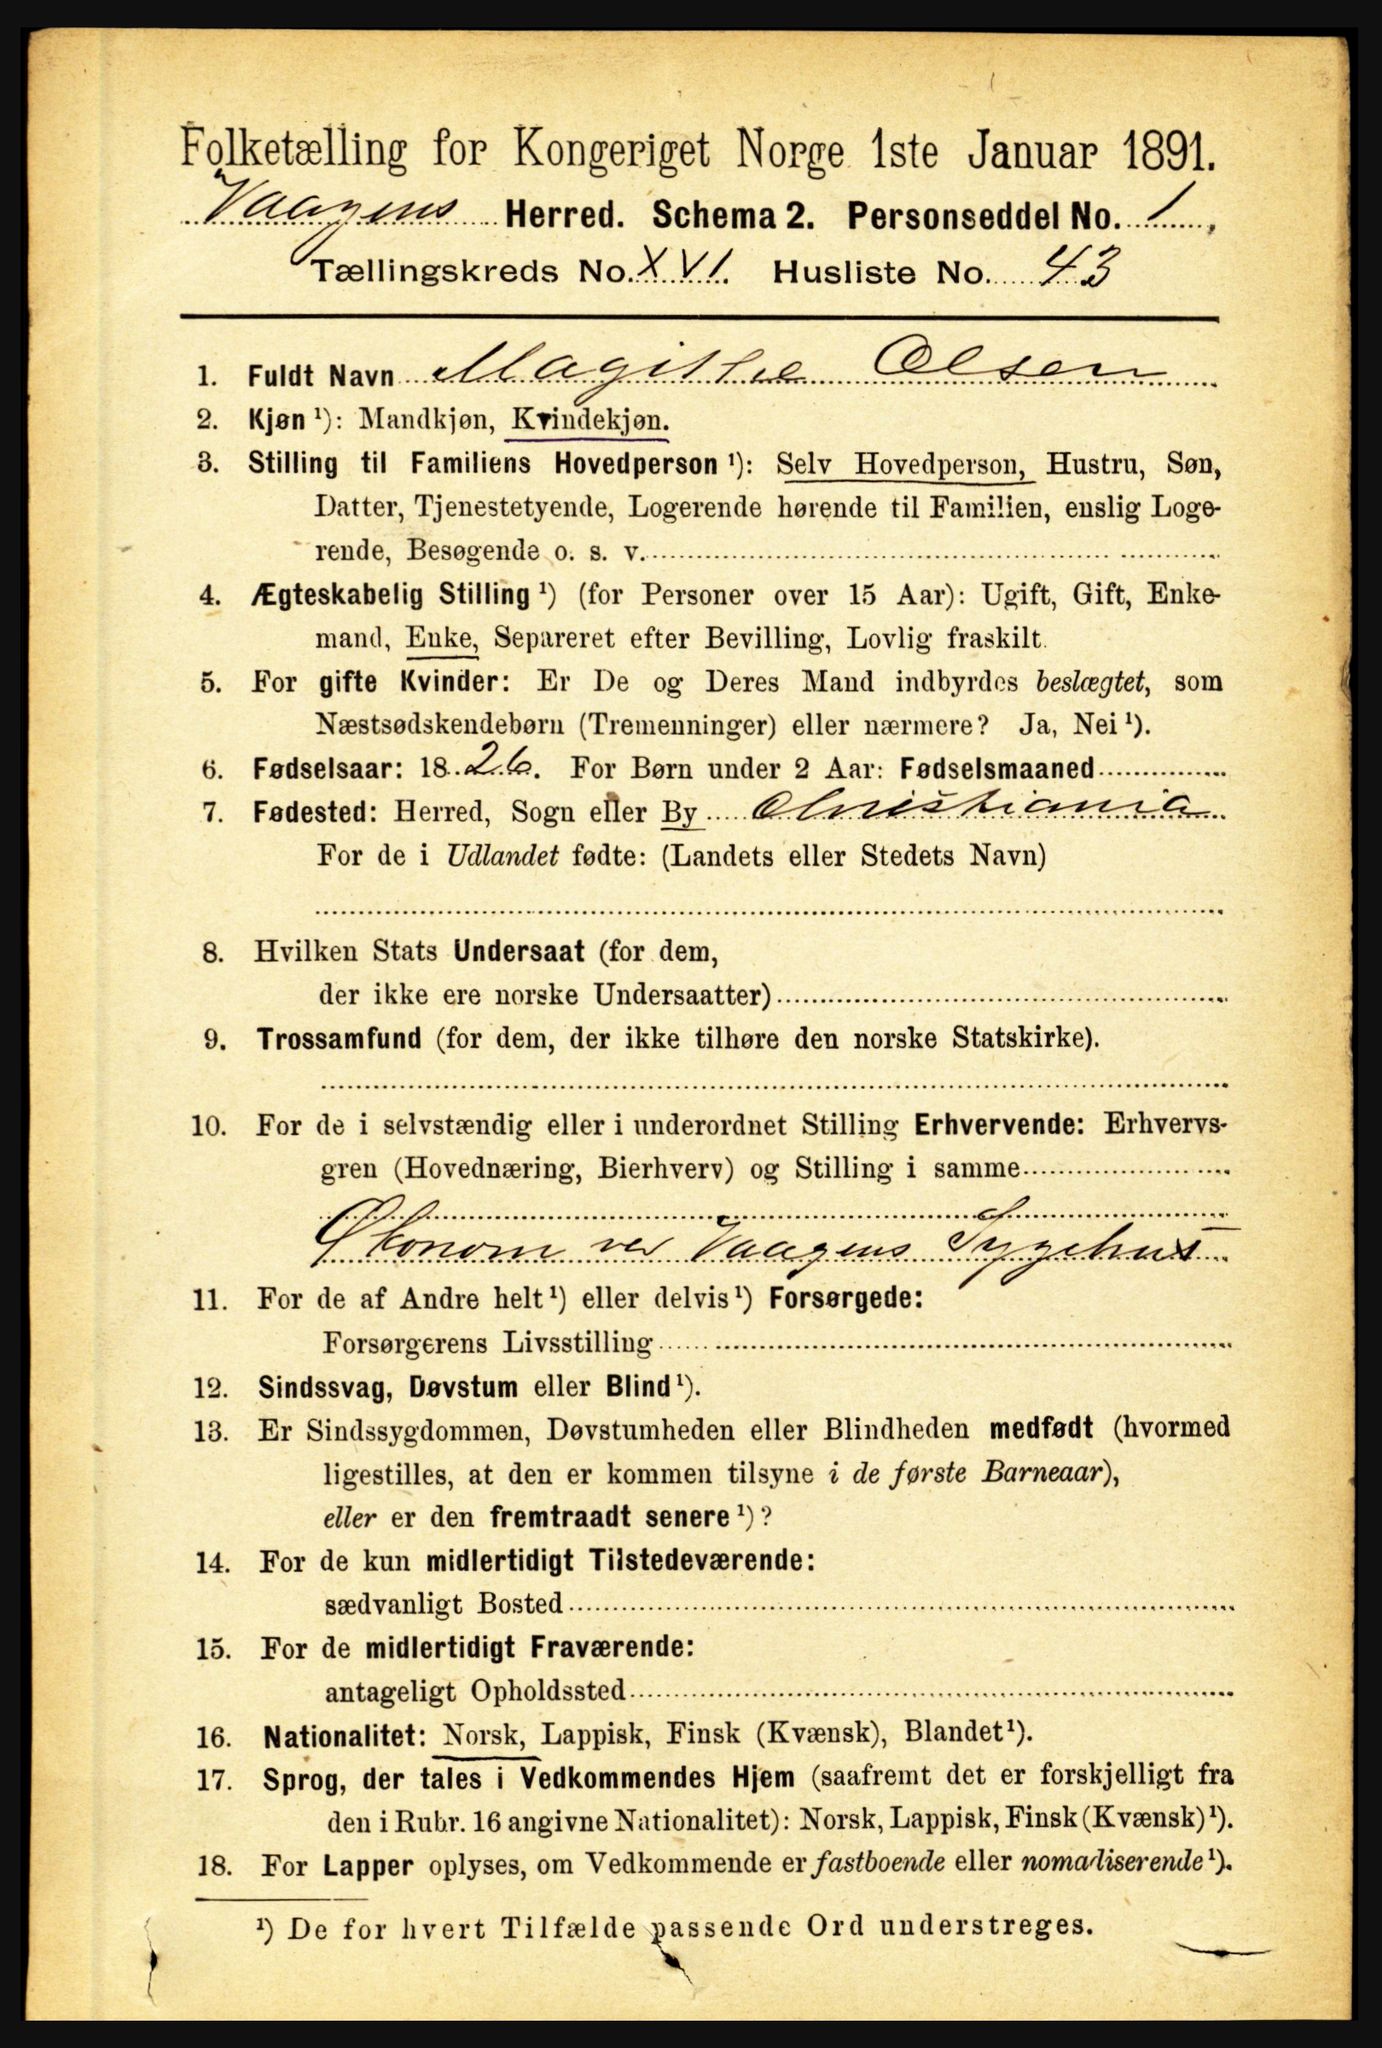 Folketælling for Kongeriget Norge 1ste Januar 1891.
Vaagens Herred. Schema 2. Personseddel No. 1,
Tællingskreds No. XVI. Husliste No. 43
1. Fuldt Navn Magithe Olsen
2. Kjøn ¹): Mandkjøn, Kvindekjøn.
3. Stilling til Familiens Hovedperson ¹): Selv Hovedperson, Hustru, Søn,
Datter, Tjenestetyende, Logerende hørende til Familien, enslig Loge-
rende, Besøgende o. s. v.
4. Ægteskabelig Stilling ¹) (for Personer over 15 Aar): Ugift, Gift, Enke-
mand, Enke, Separeret efter Bevilling, Lovlig fraskilt.
5. For gifte Kvinder: Er De og Deres Mand indbyrdes beslægtet, som
Næstsødskendebørn (Tremenninger) eller nærmere? Ja, Nei ¹).
6. Fødselsaar: 1826. For Børn under 2 Aar: Fødselsmaaned
7. Fødested: Herred, Sogn eller By Christiania
For de i Udlandet fødte: (Landets eller Stedets Navn)
8. Hvilken Stats Undersaat (for dem,
der ikke ere norske Undersaatter)
9. Trossamfund (for dem, der ikke tilhøre den norske Statskirke).
10. For de i selvstændig eller i underordnet Stilling Erhvervende: Erhvervs-
gren (Hovednæring, Bierhverv) og Stilling i samme
Økonom ved Vaagens Sygehus
11. For de af Andre helt ¹) eller delvis ¹) Forsørgede:
Forsørgerens Livsstilling
12. Sindssvag, Døvstum eller Blind ¹).
13. Er Sindssygdommen, Døvstumheden eller Blindheden medfødt (hvormed
ligestilles, at den er kommen tilsyne i de første Barneaar),
eller er den fremtraadt senere ¹)?
14. For de kun midlertidigt Tilstedeværende:
sædvanligt Bosted
15. For de midlertidigt Fraværende:
antageligt Opholdssted
16. Nationalitet: Norsk, Lappisk, Finsk (Kvænsk), Blandet ¹).
17. Sprog, der tales i Vedkommendes Hjem (saafremt det er forskjelligt fra
den i Rubr. 16 angivne Nationalitet): Norsk, Lappisk, Finsk (Kvænsk) ¹).
18. For Lapper oplyses, om Vedkommende er fastboende eller nomadiserende ¹).
¹) De for hvert Tilfælde passende Ord understreges.